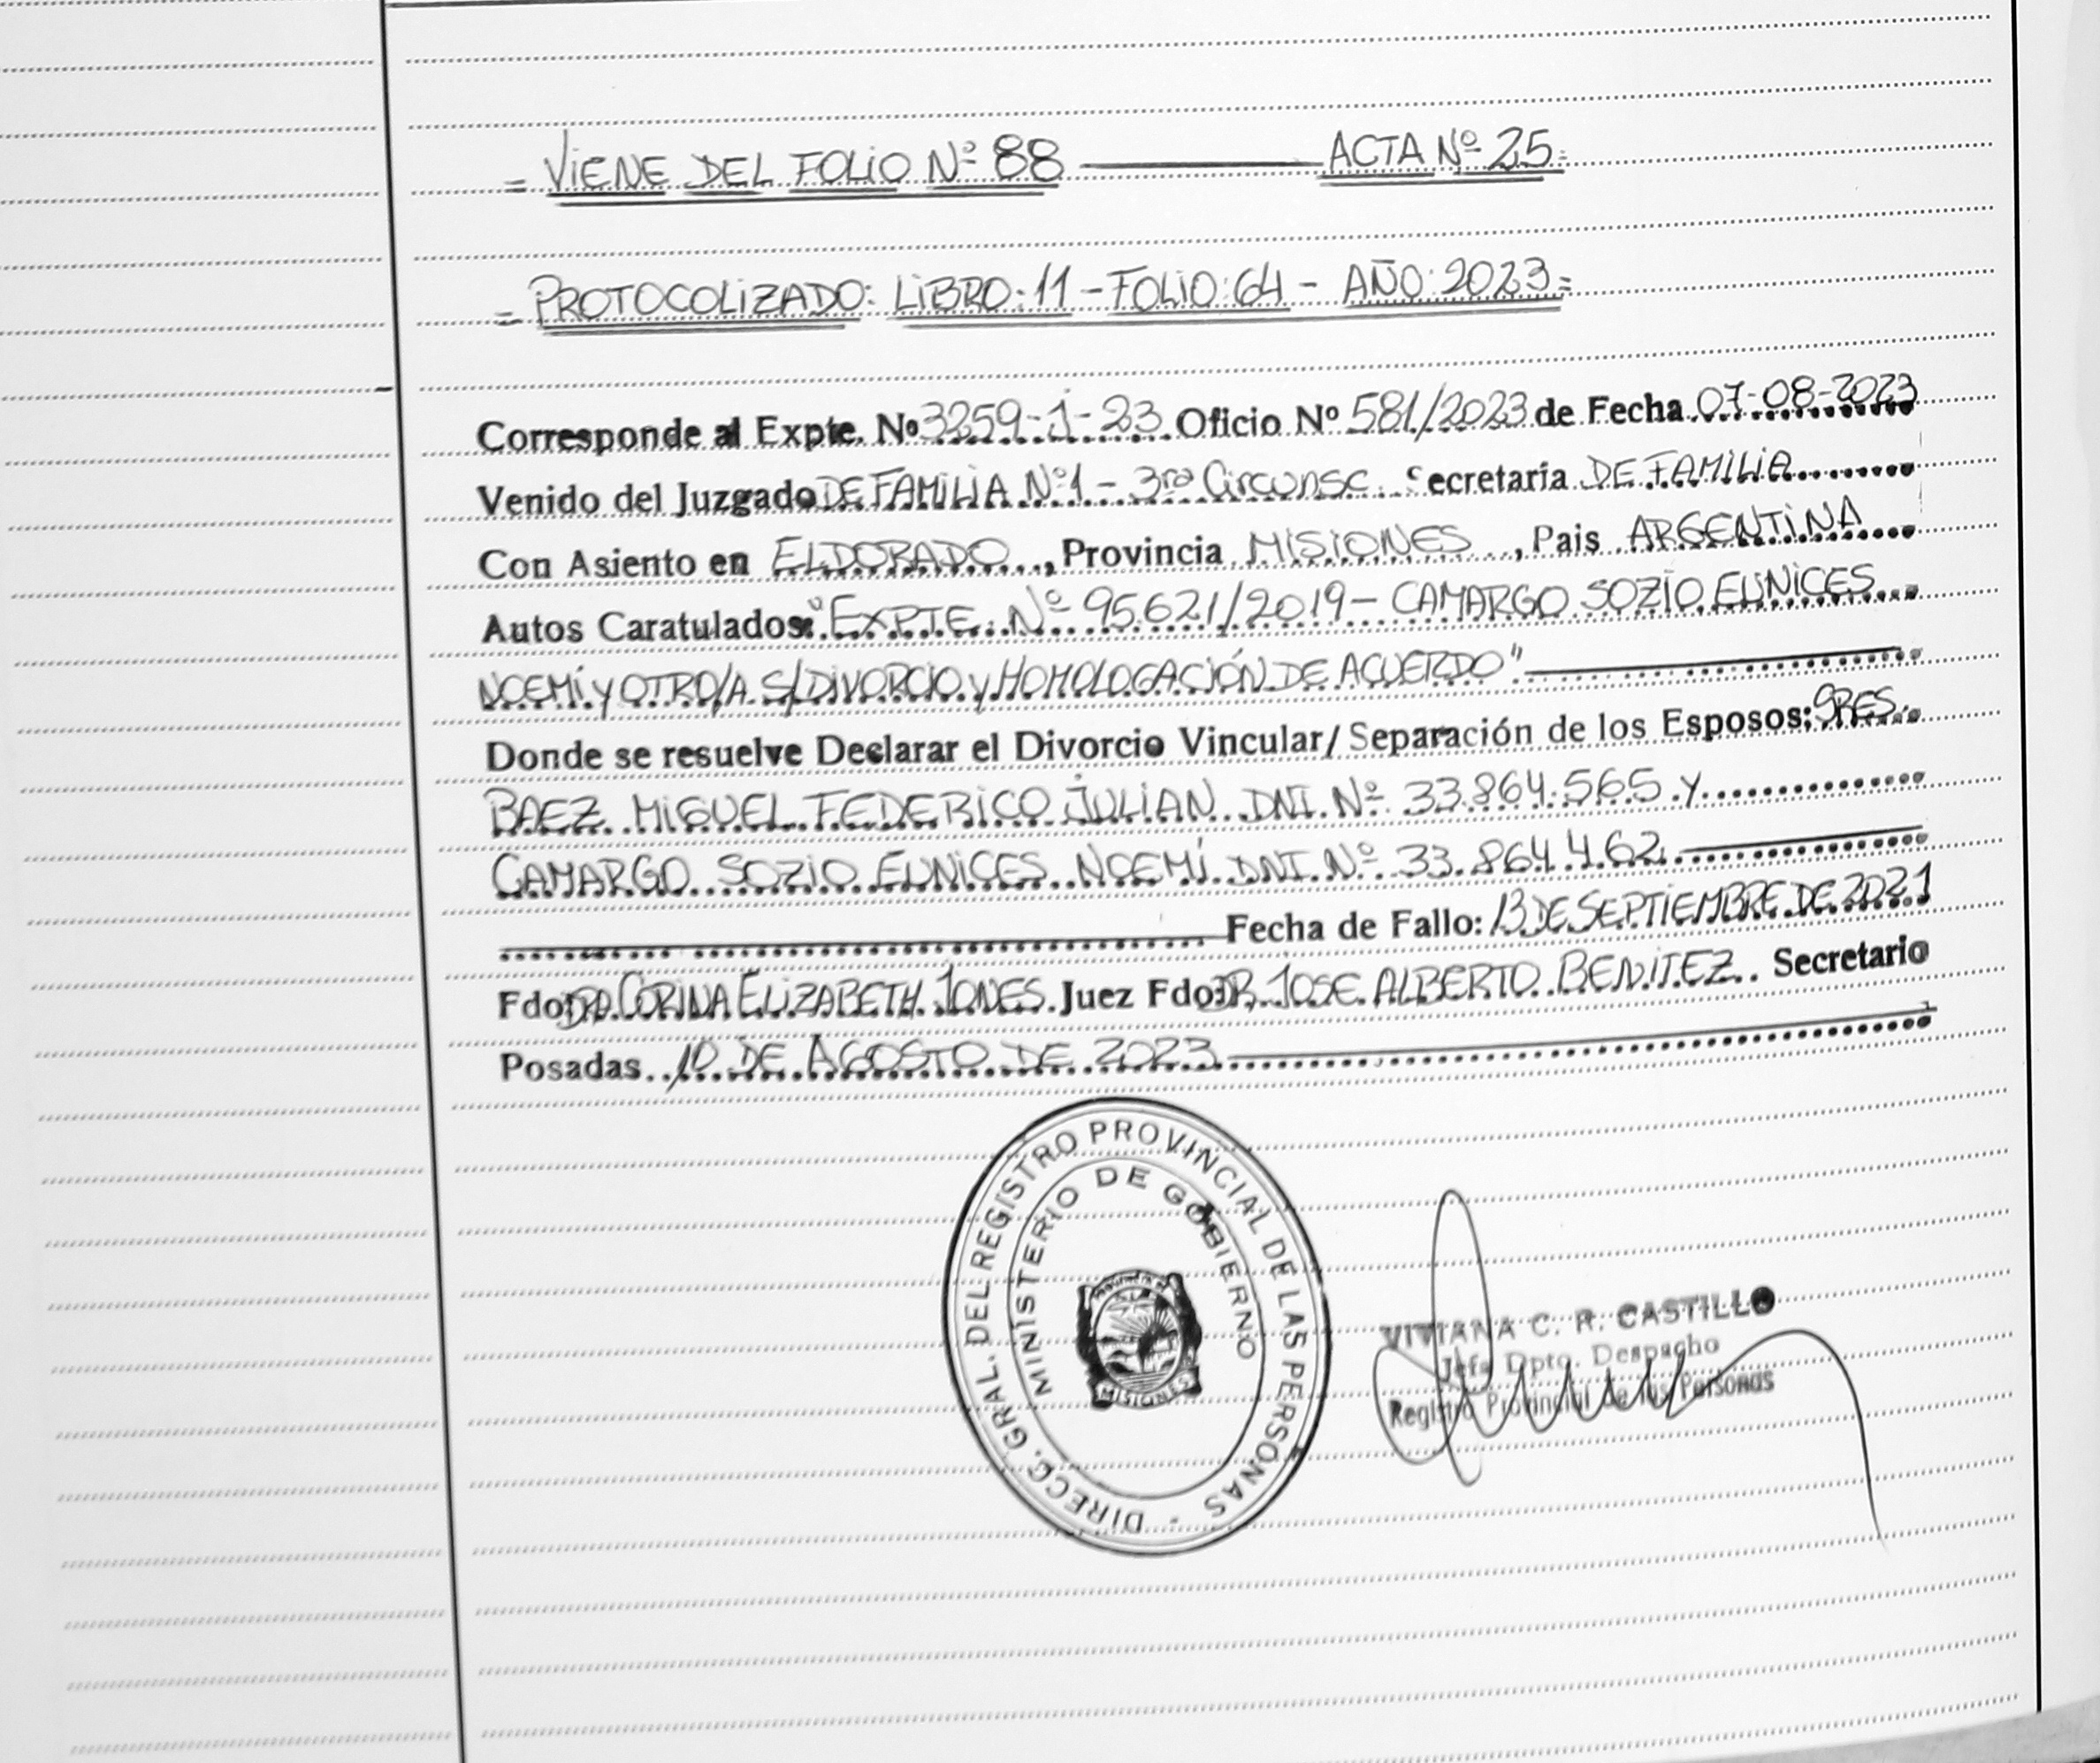 = VIENE DEL FOLIO Nº 88 ——— ACTA Nº 25=
= PROTOCOLIZADO: LIBRO: 11 – FOLIO: 64 – AÑO: 2023=
Corresponde al Expte. Nº 3259-J-23 Oficio Nº 581/2023 de Fecha 07-08-2023
Venido del Juzgado DE FAMILIA Nº1 – 3ra Circunsc. Secretaría DE FAMILIA
Con Asiento en ELDORADO, Provincia MISIONES, Pais ARGENTINA
Autos Caratulados: "EXPTE. Nº 95621/2019 – CAMARGO SOZIO EUNICES
NOEMÍ Y OTRO/A S/DIVORCIO y HOMOLOGACIÓN DE ACUERDO"
Donde se resuelve Declarar el Divorcio Vincular/ Separación de los Esposos: SRES.
BAEZ MIGUEL FEDERICO JULIAN DNI. Nº 33.864.565 y
CAMARGO SOZIO EUNICES NOEMÍ DNI. Nº 33.864.462
Fecha de Fallo: 13 DE SEPTIEMBRE DE 2021
Fdo: DRA. CORINA ELIZABETH JONES. Juez Fdo: DR. JOSE ALBERTO BENITEZ. Secretario
Posadas 10 DE AGOSTO DE 2023
DIRECC. GRAL. DEL REGISTRO PROVINCIAL DE LAS PERSONAS
MINISTERIO DE GOBIERNO
MISIONES
VIVIANA C. R. CASTILLO
Jefa Dpto. Despacho
Registro Provincial de las Personas